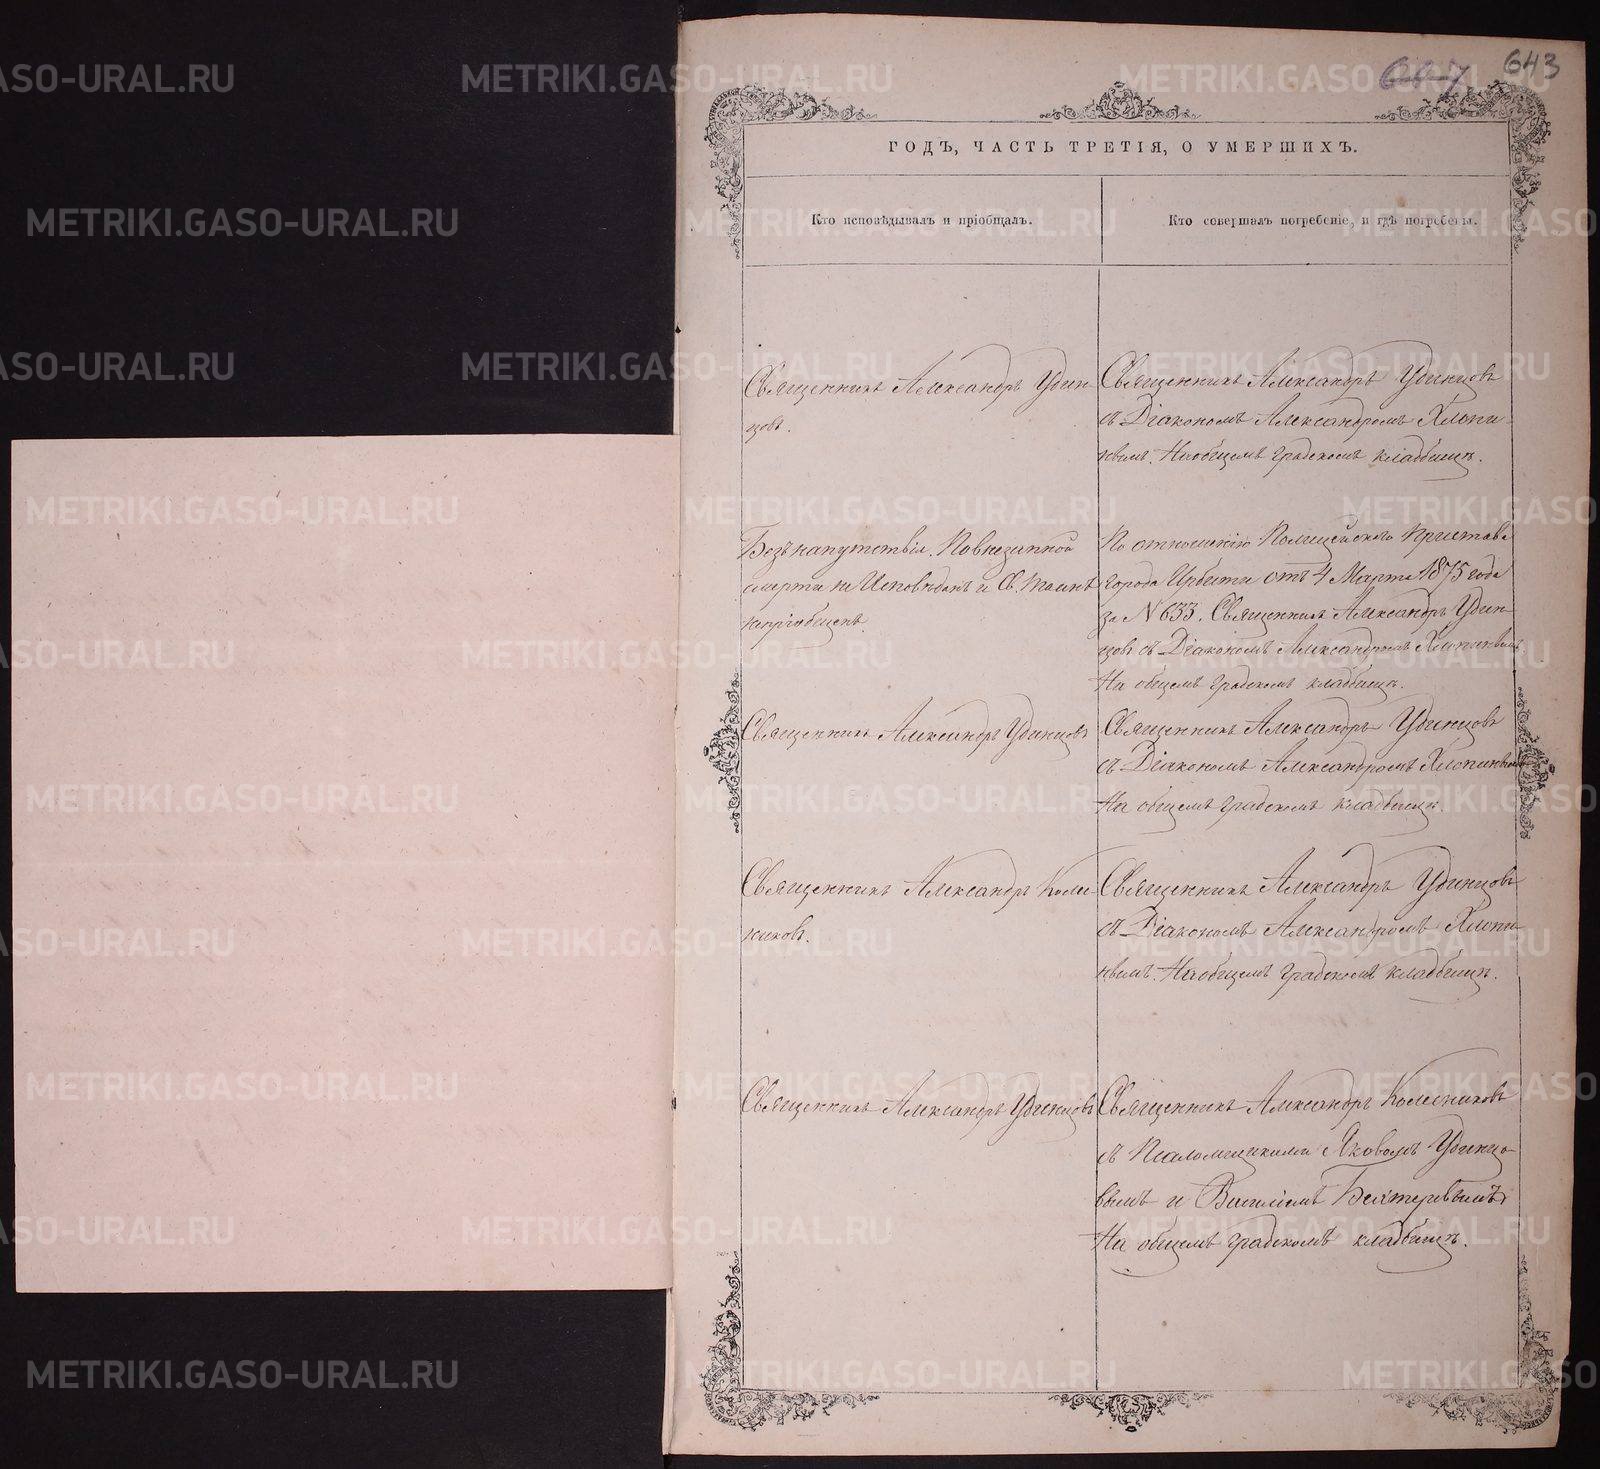 643
ГОДЪ, ЧАСТЬ ТРЕТІЯ, О УМЕРШИХЪ.
Кто исповѣдывалъ и пріобщалъ.
Кто совершалъ погребеніе, и гдѣ погребены.
Священникъ Александръ Удин-
цовъ.
Священникъ Александръ Удинцовъ
съ Діакономъ Александромъ Хлопи-
нымъ. На общемъ градскомъ кладбищѣ.
Безъ напутствія. По внезапной
смерти не Исповѣданъ и Св. Таинъ
непріобщенъ.
По отношенію Полицейскаго Пристава
города Ирбити отъ 4 Марта 1875 года
за № 633. Священникъ Александръ Удин-
цовъ съ Діакономъ Александромъ Хлопинымъ
На общемъ градскомъ кладбищѣ.
Священникъ Александръ Удинцовъ
Священникъ Александръ Удинцовъ
съ Діакономъ Александромъ Хлопинымъ
На общемъ градскомъ кладбищѣ.
Священникъ Александръ Колес-
никовъ.
Священникъ Александръ Удинцовъ
съ Діакономъ Александромъ Хлопи-
нымъ. На общемъ градскомъ кладбищѣ.
Священникъ Александръ Удинцовъ
Священникъ Александръ Колесниковъ
съ Псаломщиками Яковомъ Удинцо-
вымъ и Василіемъ Бехтеревымъ
На общемъ градскомъ кладбищѣ.
METRIKI.GASO-URAL.RU